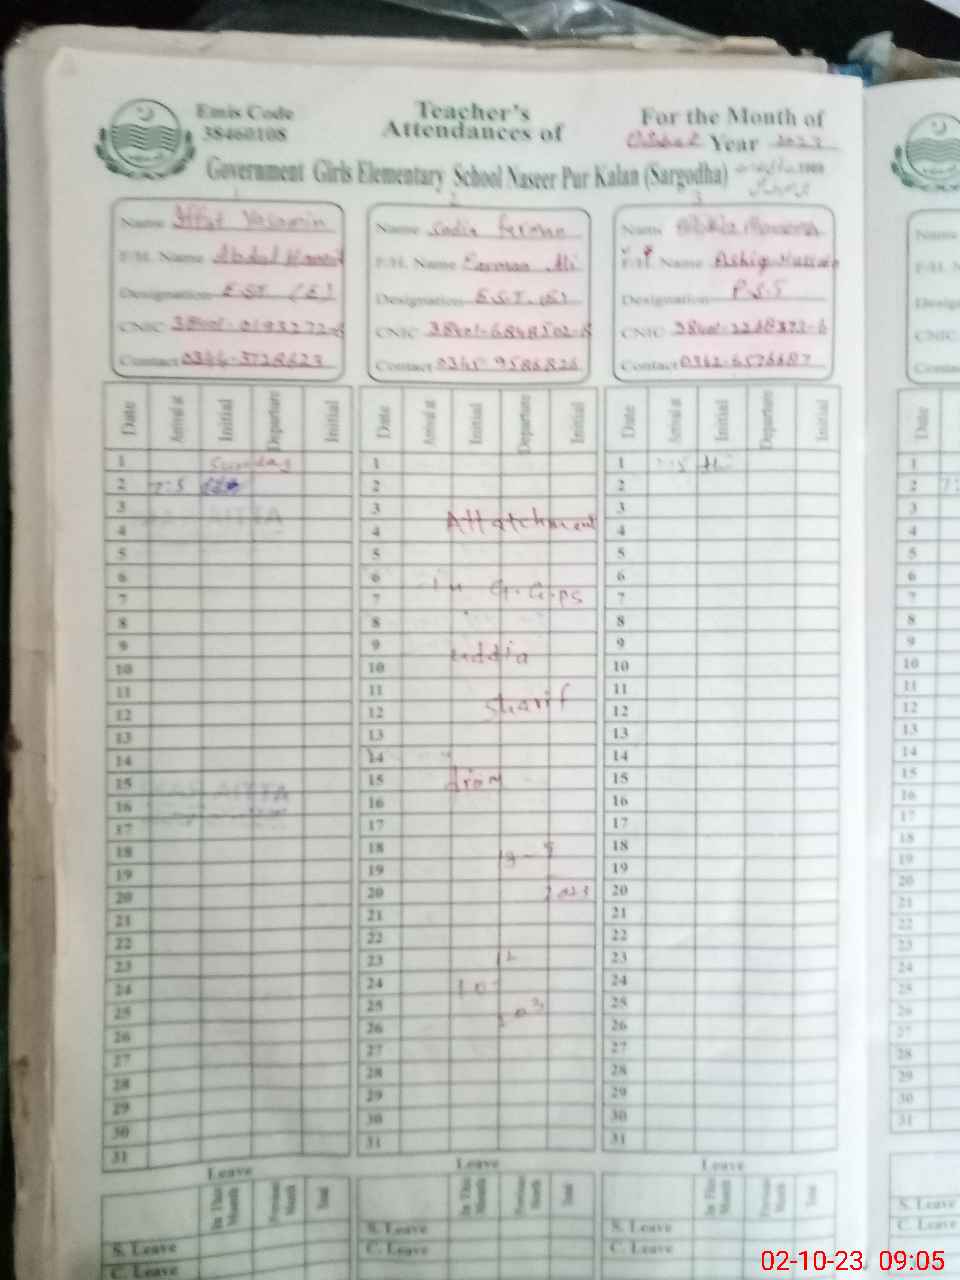 Emis Code
38460108
Teacher's
Attendances of
For the Month of
October Year 2023
Government Girls Elementary School Naseer Pur Kalan (Sargodha)
1 2 3
Name Iffat Yasamin
F/H. Name Abdul Hameed
Designation E.S.T (E)
CNIC
Contact 0344-3728623
Name Sadia Farman
F/H. Name Farman Ali
Designation E.S.T. (E)
CNIC 38401-6848502-8
Contact 0345 9586826
Name
F/H Name Ashiq Hussain
Designation P.S.T
CNIC
Contact 0342-6576687
Date Arrival at Initial Departure Initial
1 Sunday
2 7:5
3
4
5
6
7
8
9
10
11
12
13
14
15
16
17
18
19
20
21
22
23
24
25
26
27
28
29
30
31
Date Arrival at Initial Departure Initial
1
2
3
4 Attatchment
5
6
7 in G.G.PS
8
9
10
11
12 Sharif
13
14
15 from
16
17
18
19
20 2023
21
22
23 12
24 10
25
26
27
28
29
30
31
Date Arrival at Initial Departure Initial
1
2
3
4
5
6
7
8
9
10
11
12
13
14
15
16
17
18
19
20
21
22
23
24
25
26
27
28
29
30
31
Leave
In This Month Previous Month Total
S. Leave
C. Leave
Leave
In This Month Previous Month Total
S. Leave
C. Leave
Leave
In This Month Previous Month Total
S. Leave
C. Leave
Name
Date
1
2
3
4
5
6
7
8
9
10
11
12
13
14
15
16
17
18
19
20
21
22
23
24
25
26
27
28
29
30
31
S. Leave
C. Leave
02-10-23 09:05